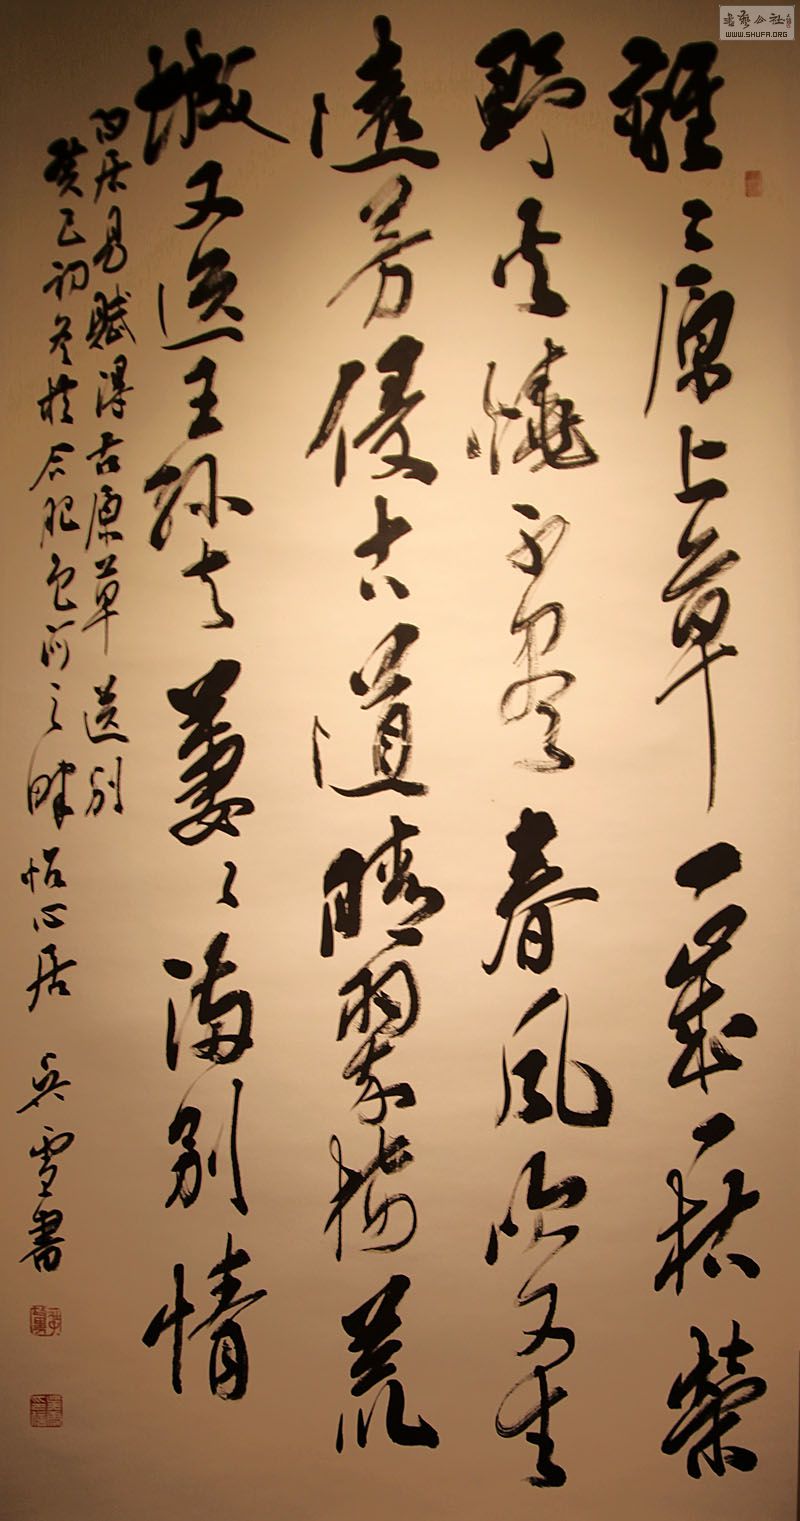 離〻原上草一歲一枯榮
野火燒不盡春風吹又生
遠芳侵古道晴翠接荒
城又送王孫去萋〻滿別情
白居易賦得古原草 送別
癸巳初冬於合肥包河之畔 怡心居 吳雪書
書藝公社
WWW.SHUFA.ORG